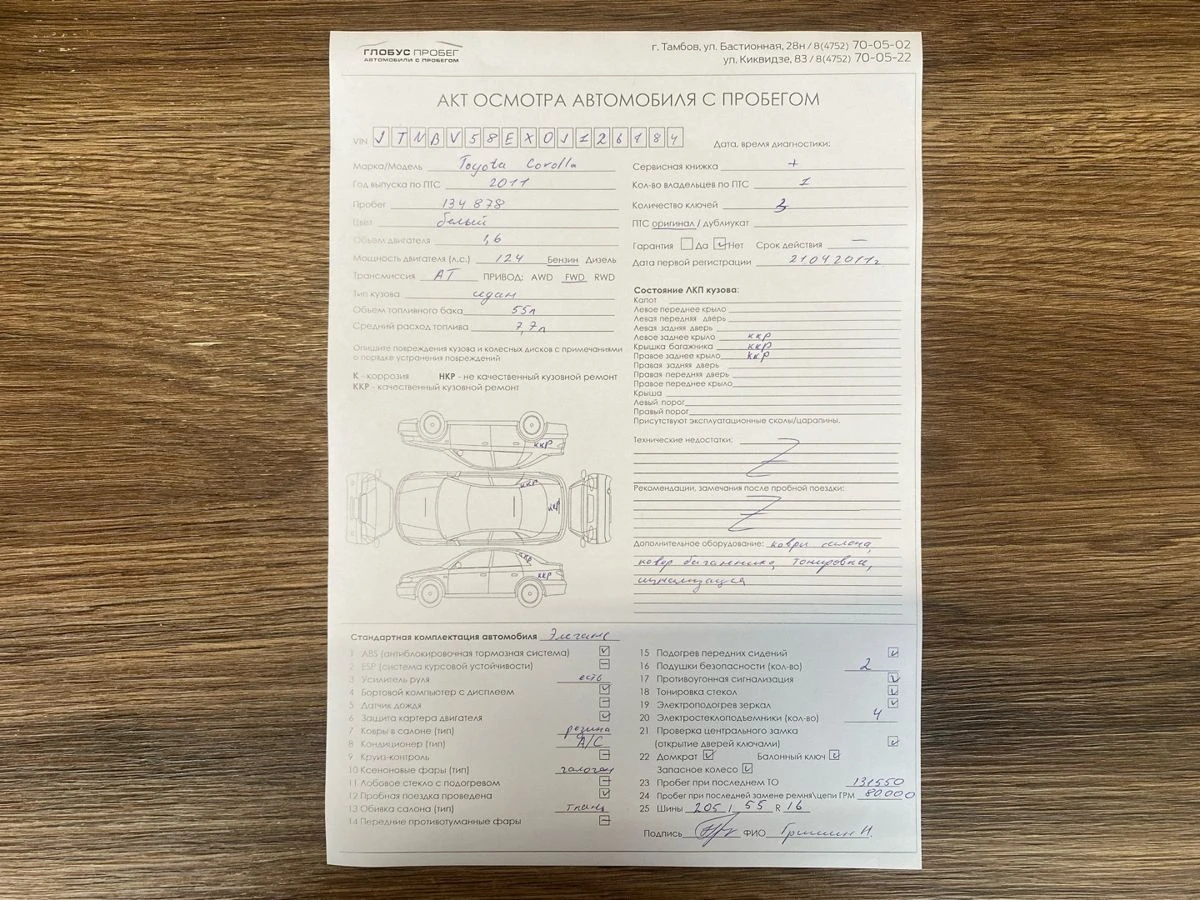 ГЛОБУС ПРОБЕГ
АВТОМОБИЛИ С ПРОБЕГОМ
г. Тамбов, ул. Бастионная, 28н / 8(4752) 70-05-02
ул. Киквидзе, 83 / 8(4752) 70-05-22
АКТ ОСМОТРА АВТОМОБИЛЯ С ПРОБЕГОМ
VIN JTNBV58EX0J126184
Дата, время диагностики:
Марка/Модель Toyota Corolla
Год выпуска по ПТС 2011
Пробег 134 878
Цвет белый
Объем двигателя 1,6
Мощность двигателя (л.с.) 124 Бензин Дизель
Трансмиссия АТ ПРИВОД: AWD FWD RWD
Тип кузова седан
Объем топливного бака 55л
Средний расход топлива 7,7л
Сервисная книжка +
Кол-во владельцев по ПТС 1
Количество ключей 3
ПТС оригинал / дубликат
Гарантия Да Нет Срок действия —
Дата первой регистрации 21042011г
Опишите повреждения кузова и колесных дисков с примечаниями
о порядке устранения повреждений
К - коррозия НКР - не качественный кузовной ремонт
ККР - качественный кузовной ремонт
ккр
ккр
ккр
ккр
ккр
Состояние ЛКП кузова:
Капот
Левое переднее крыло
Левая передняя дверь
Левая задняя дверь
Левое заднее крыло ккр
Крышка багажника ккр
Правое заднее крыло ккр
Правая задняя дверь
Правая передняя дверь
Правое переднее крыло
Крыша
Левый порог
Правый порог
Присутствуют эксплуатационные сколы/царапины.
Технические недостатки: Z
Рекомендации, замечания после пробной поездки:
Z
Дополнительное оборудование: ковры салона,
ковер багажника, тонировка,
сигнализация
Стандартная комплектация автомобиля Элеганс
1 ABS (антиблокировочная тормозная система)
2 ESP (система курсовой устойчивости)
3 Усилитель руля есть
4 Бортовой компьютер с дисплеем
5 Датчик дождя
6 Защита картера двигателя
7 Ковры в салоне (тип) резина
8 Кондиционер (тип) A/C
9 Круиз-контроль
10 Ксеноновые фары (тип) галоген
11 Лобовое стекло с подогревом
12 Пробная поездка проведена
13 Обивка салона (тип) ткань
14 Передние противотуманные фары
15 Подогрев передних сидений
16 Подушки безопасности (кол-во) 2
17 Противоугонная сигнализация
18 Тонировка стекол
19 Электроподогрев зеркал
20 Электростеклоподъемники (кол-во) 4
21 Проверка центрального замка
(открытие дверей ключами)
22 Домкрат Балонный ключ
Запасное колесо
23 Пробег при последнем ТО 131550
24 Пробег при последней замене ремня\цепи ГРМ 80000
25 Шины 205 / 55 R 16
Подпись ФИО Гришин И.